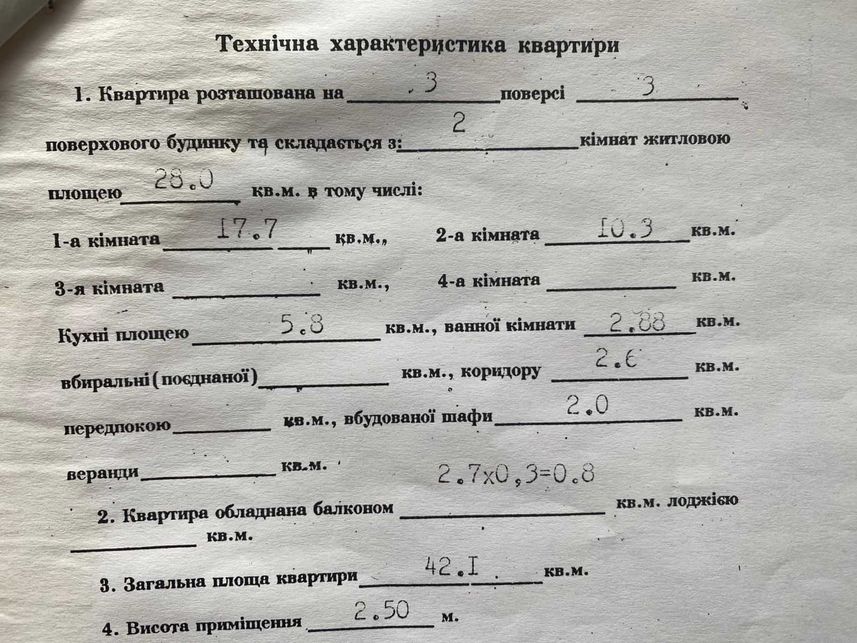 Технічна характеристика квартири
1. Квартира розташована на 3 поверсі 3
поверхового будинку та складається з: 2 кімнат житловою
площею 28.0 кв.м. в тому числі:
1-а кімната 17.7 кв.м., 2-а кімната 10.3 кв.м.
3-я кімната кв.м., 4-а кімната кв.м.
Кухні площею 5.8 кв.м., ванної кімнати 2.88 кв.м.
вбиральні (поєднаної) кв.м., коридору 2.6 кв.м.
передпокою кв.м., вбудованої шафи 2.0 кв.м.
веранди кв.м.
2.7х0,3=0.8
2. Квартира обладнана балконом кв.м. лоджією
кв.м.
3. Загальна площа квартири 42.I кв.м.
4. Висота приміщення 2.50 м.